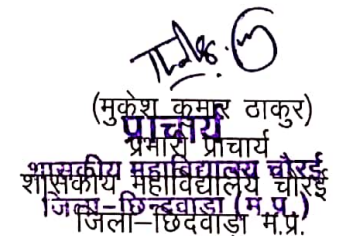 (मुकेश कुमार ठाकुर)
प्राचार्य
प्रभारी प्राचार्य
शासकीय महाविद्यालय चौरई
शासकीय महाविद्यालय चौरई
जिला-छिन्दवाडा (म.प्र.)
जिला-छिंदवाड़ा म.प्र.